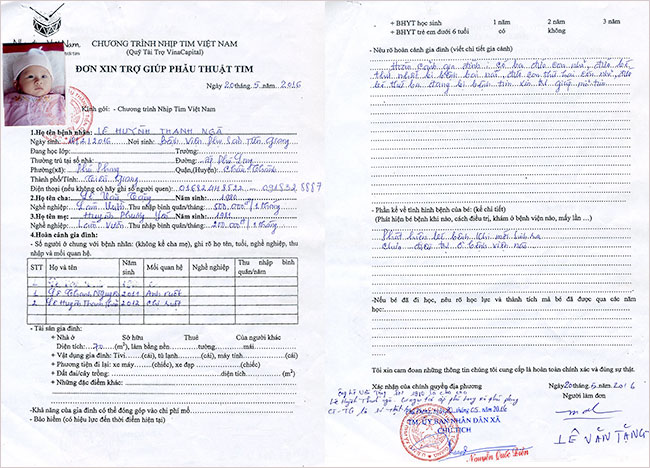 CHƯƠNG TRÌNH NHỊP TIM VIỆT NAM
(Quỹ Tài Trợ VinaCapital)
ĐƠN XIN TRỢ GIÚP PHẪU THUẬT TIM
Ngày 20 tháng 5 năm 2016
Kính gởi: - Chương trình Nhịp Tim Việt Nam
1.Họ tên bệnh nhân: LÊ HUỲNH THANH NGÃ
Ngày sinh: 2016 Nơi sinh: Bệnh Viện Phụ Sản Tiền Giang
Đang học lớp: Trường:
Thường trú tại số nhà: Đường: Ấp Phú
Phường(xã): Phú Phong Quận,(Huyện): Châu Thành
Thành phố/Tỉnh: Tiền Giang
Điện thoại (nếu không có hãy ghi số người quen):
2.Họ tên cha: Lê Văn Tăng Năm sinh: 1980
Nghề nghiệp: Làm Vườn Thu nhập bình quân/tháng: 500.000đ/1 tháng
3.Họ tên mẹ: Huỳnh Phương Năm sinh: 1981
Nghề nghiệp: Làm Vườn Thu nhập bình quân/tháng: 1 tháng
4.Hoàn cảnh gia đình:
- Số người ở chung với bệnh nhân: (không kể cha mẹ), ghi rõ họ tên, tuổi, nghề nghiệp, thu
nhập và mối quan hệ.
STT Họ và tên Năm sinh Mối quan hệ Nghề nghiệp Thu nhập bình quân/năm
1 Lê Nguyên 2011 Anh ruột
2 Lê Huỳnh Thanh 2012 Chị ruột
- Tài sản gia đình:
+ Nhà ở Sở hữu Thuê Của người khác
Diện tích: 70 (m²), làm bằng nền tường mái
+ Vật dụng gia đình: Tivi (cái), tủ lạnh (cái), máy tính (cái)
+ Phương tiện đi lại: xe máy (chiếc), xe đạp (chiếc)
+ Đất đai/cây trồng: diện tích (m²)
+ Những đặc điểm khác:
-Khả năng của gia đình có thể đóng góp vào chi phí mổ
- Bảo hiểm (có hiệu lực đến thời điểm hiện tại)
+ BHYT học sinh 1 năm 2 năm 3 năm
+ BHYT trẻ em dưới 6 tuổi có không
- Nêu rõ hoàn cảnh gia đình (viết chi tiết gia cảnh)
Hoàn cảnh gia đình có ba đứa con nhỏ, đứa bé
thứ nhất bị bệnh đứa con thứ hai còn nhỏ, đứa
bé thứ ba đang bị bệnh tim xin trợ giúp mổ tim
- Phần kể về tình hình bệnh của bé: (kể chi tiết)
(Phát hiện bé bệnh khi nào, cách điều trị, khám ở bệnh viện nào, mấy lần …)
Phát hiện bé bệnh khi mới sinh ra
chưa điều trị ở bệnh viện nào
-Nếu bé đã đi học, nêu rõ học lực và thành tích mà bé đã được qua các năm
học:
Tôi xin cam đoan những thông tin chúng tôi cung cấp là hoàn toàn chính xác và đúng sự thật.
Xác nhận của chính quyền địa phương
Ngày 20 tháng 5 năm 2016
Người làm đơn
TM. ỦY BAN NHÂN DÂN XÃ
CHỦ TỊCH
Nguyễn Quốc
LÊ VĂN TĂNG